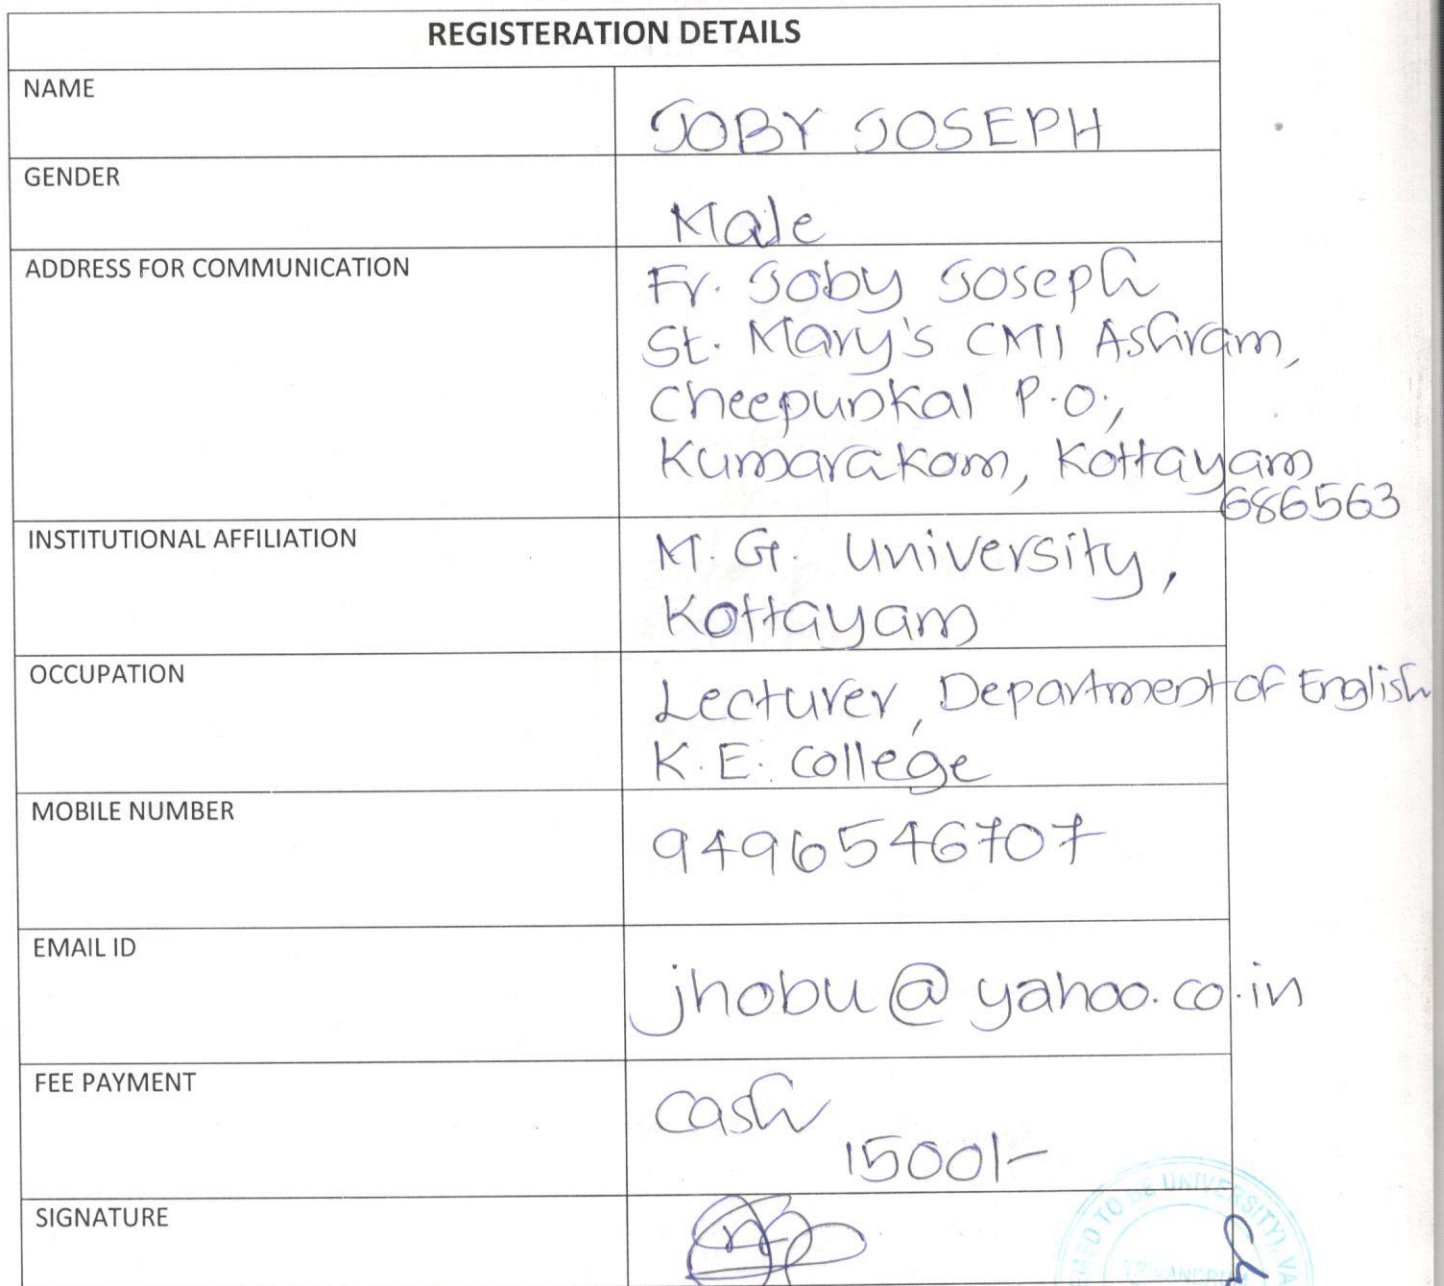 REGISTERATION DETAILS
NAME
JOBY JOSEPH
GENDER
Male
ADDRESS FOR COMMUNICATION
Fr. Joby Joseph
St. Mary's CMI Ashram,
Cheepunkal P.O.,
Kumarakom, Kottayam
686563
INSTITUTIONAL AFFILIATION
M. G. University,
Kottayam
OCCUPATION
Lecturer, Department of English
K. E. College
MOBILE NUMBER
9496546707
EMAIL ID
jhobu@yahoo.co.in
FEE PAYMENT
Cash
1500/-
SIGNATURE
TO BE UNIVERSITY), VA